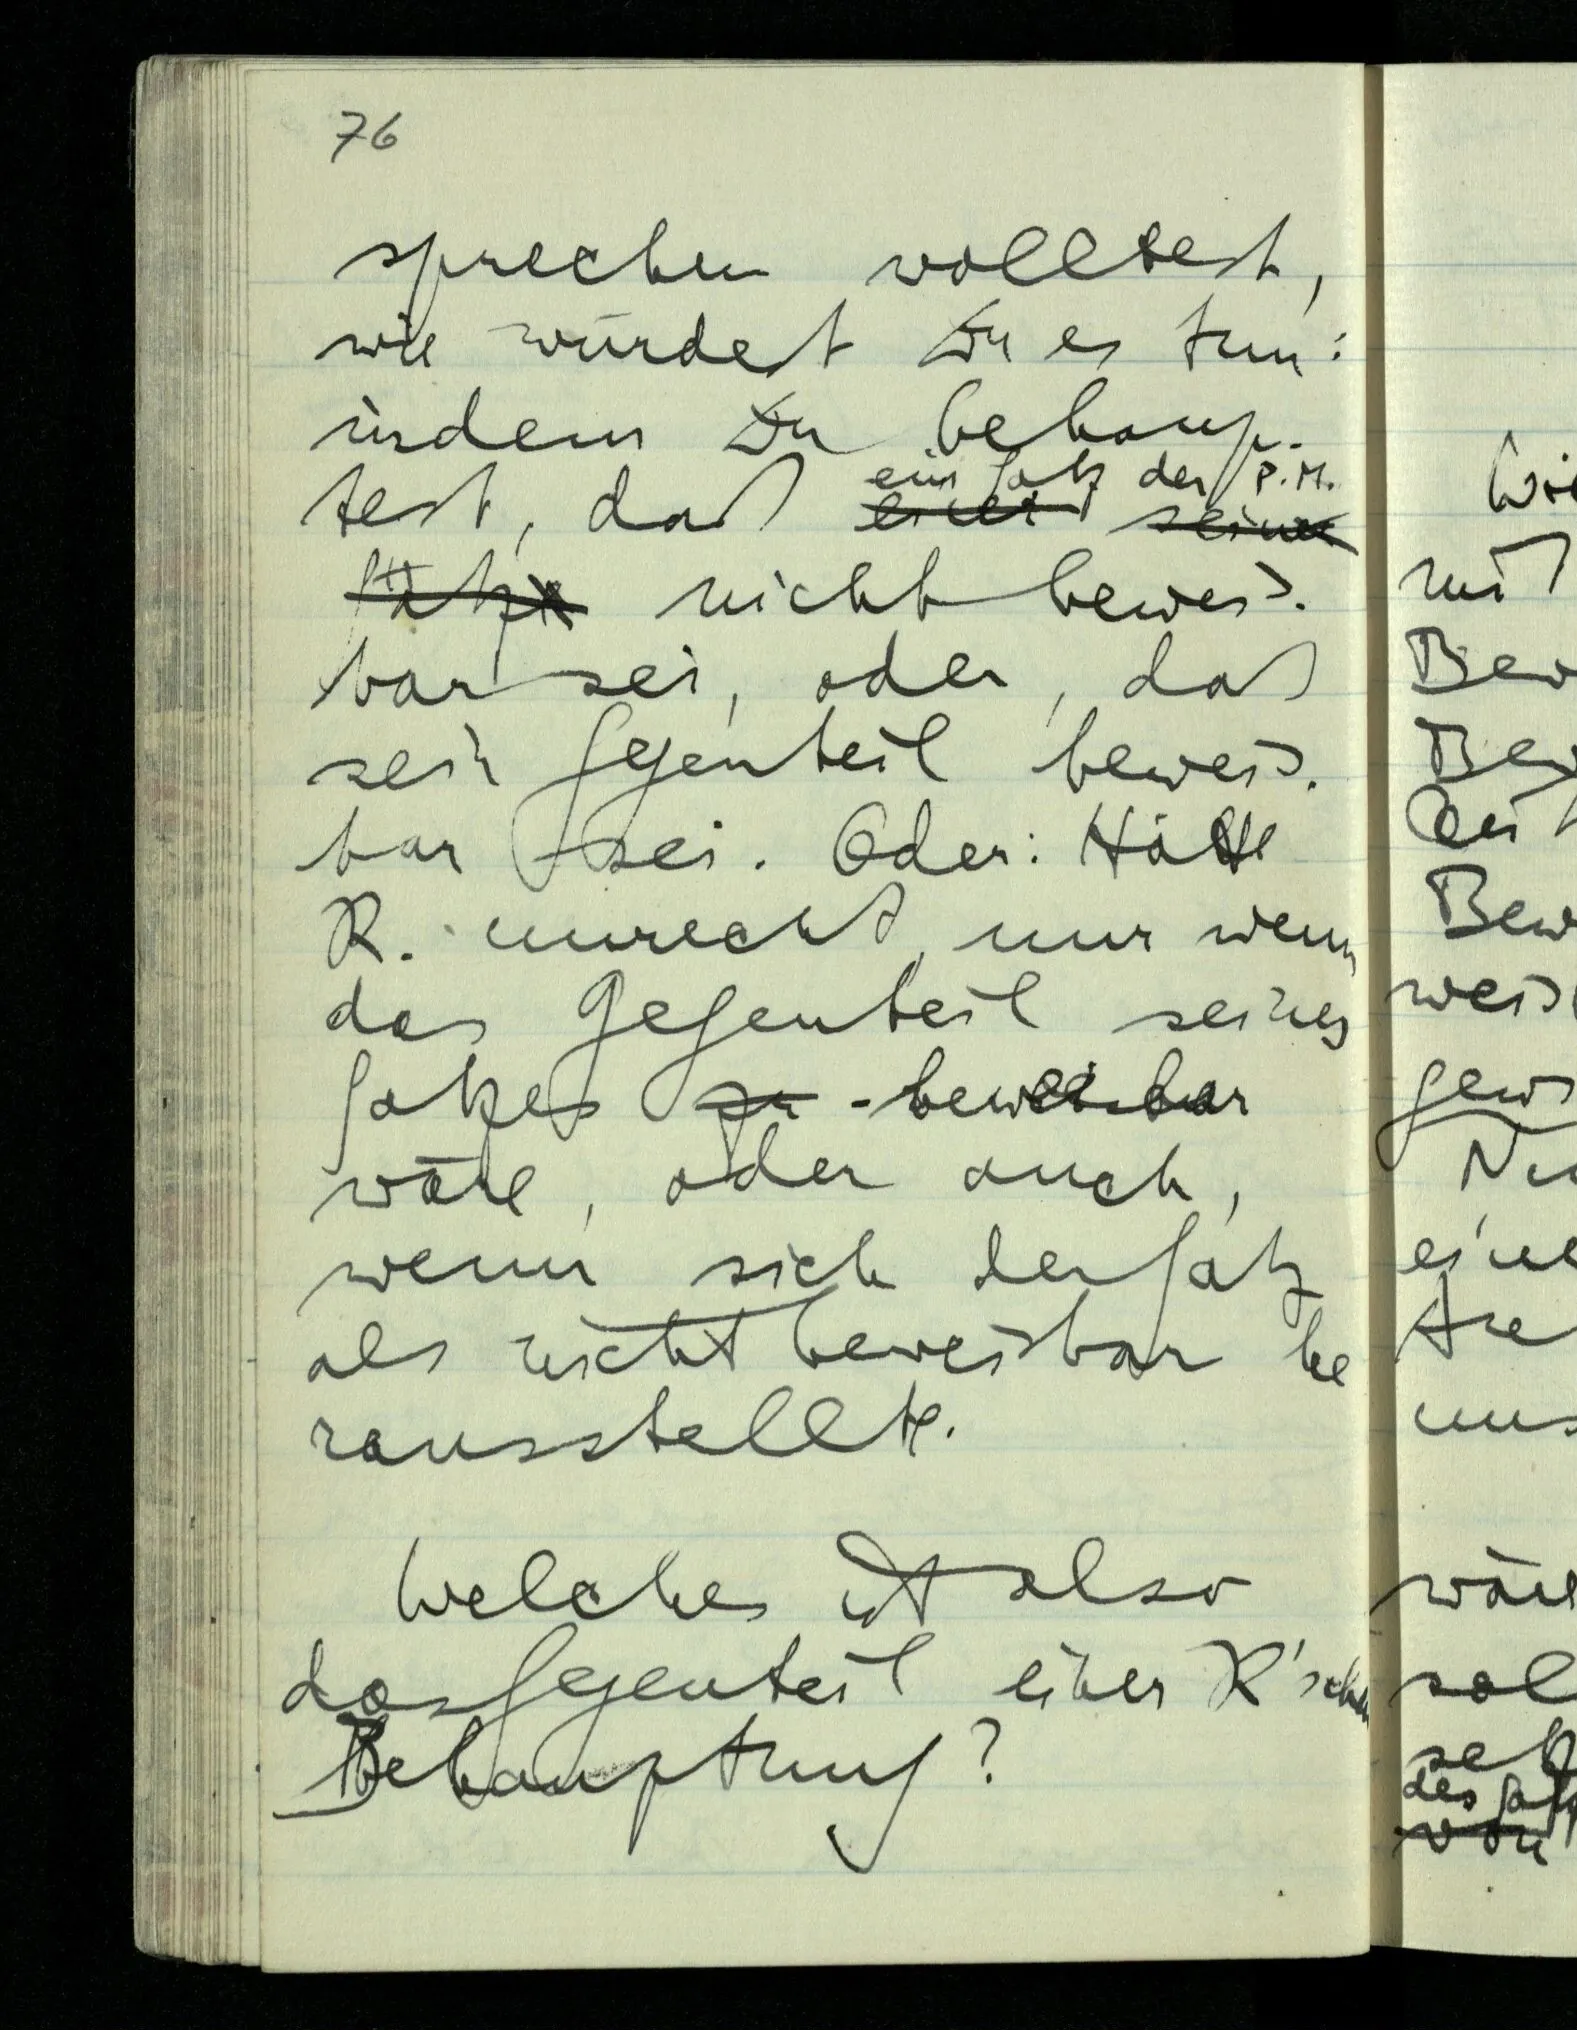 76
sprechen wolltest,
wie würdest Du es tun:
indem Du behaup-
ein Satz der P.M.
test, daß einer seiner
Sätze nicht beweis-
bar sei, oder, daß
sein Gegenteil beweis-
bar sei. Oder: Hätte
R. unrecht, nur wenn
das Gegenteil seines
Satzes zu beweisbar
wäre, oder auch,
wenn sich der Satz
als nicht beweisbar he
rausstellte.
Welches ist also
das Gegenteil einer R'schen
Behauptung?
Wie
mit
Bew
Bew
Bew
weis
gew
eine
uns
wäre
sol
des Satz
von